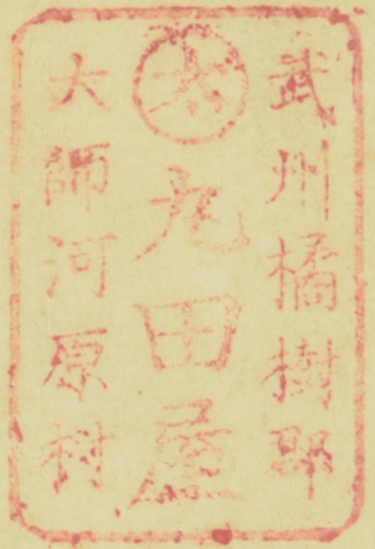 武州橘樹郡
丸田屋
大師河原村